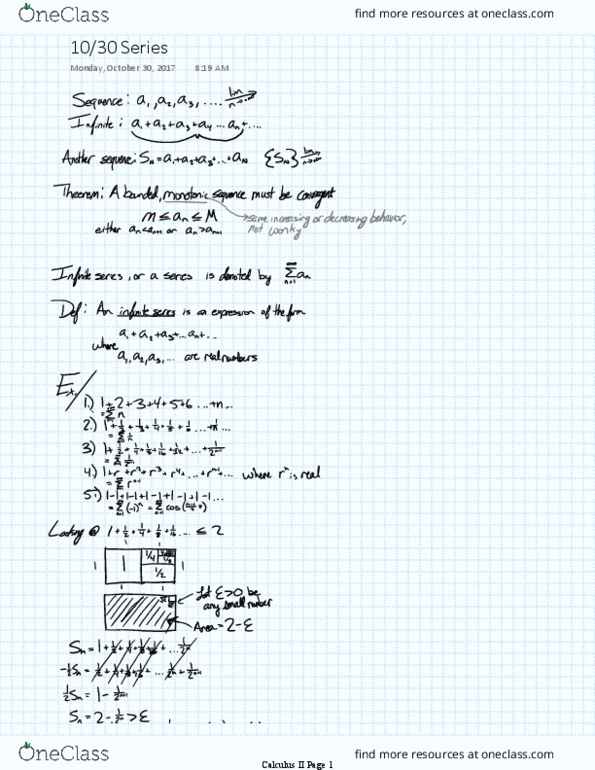 OneClass find more resources at oneclass.com
10/30 Series
Monday, October 30, 2017 8:19 AM
Sequence: a₁, a₂, a₃, .... lim n→∞
Infinite: a₁+a₂+a₃+a₄...aₙ+....
Another sequence: Sₙ=a₁+a₂+a₃+...+aₙ {Sₙ} lim n→∞
Theorem: A bounded, monotonic sequence must be convergent
m ≤ aₙ ≤ M
same increasing or decreasing behavior,
either aₙ<aₙ₊₁ or aₙ>aₙ₊₁ not wonky
Infinite series, or a series is denoted by ∞ Σ n=1 aₙ
Def: An infinite series is a expression of the form
a₁+a₂+a₃+...aₙ+...
where
a₁,a₂,a₃,... are real numbers
Ex/
1.) 1+2+3+4+5+6...+n...
=Σ n
2.) 1+1/2+1/3+1/4+
3) 1+1/2+1/4+1/8+1/16+1/32+...+
4.) 1+r+r²+r³+r⁴+...+rⁿ⁻¹+... where r is real
=Σ rⁿ⁻¹
5.) 1-1+1-1+1-1+1-1...
=Σ(-1)ⁿ =Σcos
Looking @ 1+1/2+1/4+1/8+1/16... ≤ 2
1 1
1/4
1 1 1
1/2
1 1
Let ε>0 be
any small number
Area=2-ε
Sₙ=1+1/2+1/4+1/8+1/16+...1/2ⁿ
-½Sₙ=1/2+1/4+1/8+1/16+...1/2ⁿ+1/2ⁿ⁺¹
½Sₙ=1-1/2ⁿ⁺¹
Sₙ=2-1/2ⁿ>ε
OneClass find more resources at oneclass.com
Calculus II Page 1